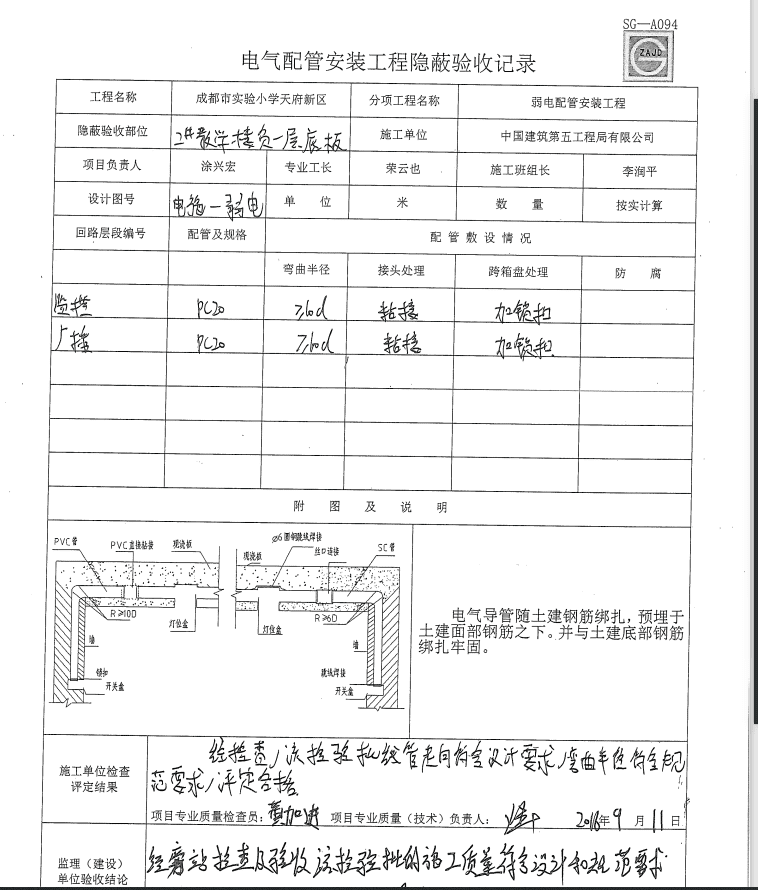 SG—A094
ZAJD
电气配管安装工程隐蔽验收记录
工程名称 成都市实验小学天府新区 分项工程名称 弱电配管安装工程
隐蔽验收部位 2#教学楼负一层底板 施工单位 中国建筑第五工程局有限公司
项目负责人 涂兴宏 专业工长 荣云也 施工班组长 李润平
设计图号 电施-弱电 单 位 米 数 量 按实计算
回路层段编号 配管及规格 配 管 敷 设 情 况
弯曲半径 接头处理 跨箱盘处理 防 腐
监控 PC20 ≥10d 粘接 加锁扣
广播 PC20 ≥10d 粘接 加锁扣
附 图 及 说 明
PVC管 PVC直接粘接 现浇板 现浇板 ø6圆钢跳线焊接 丝口连接 SC管
R≥10D 灯位盒 灯位盒 R≥6D
墙 墙
锁扣 跳线焊接
开关盒 开关盒
电气导管随土建钢筋绑扎，预埋于
土建面部钢筋之下。并与土建底部钢筋
绑扎牢固。
施工单位检查
评定结果
经检查，该检验批线管走向符合设计要求，弯曲半径符合规
范要求，评定合格
项目专业质量检查员：黄加进 项目专业质量（技术）负责人： 2016年9月11日
监理（建设）
单位验收结论
经旁站检查及验收该检验批的施工质量符合设计和规范要求